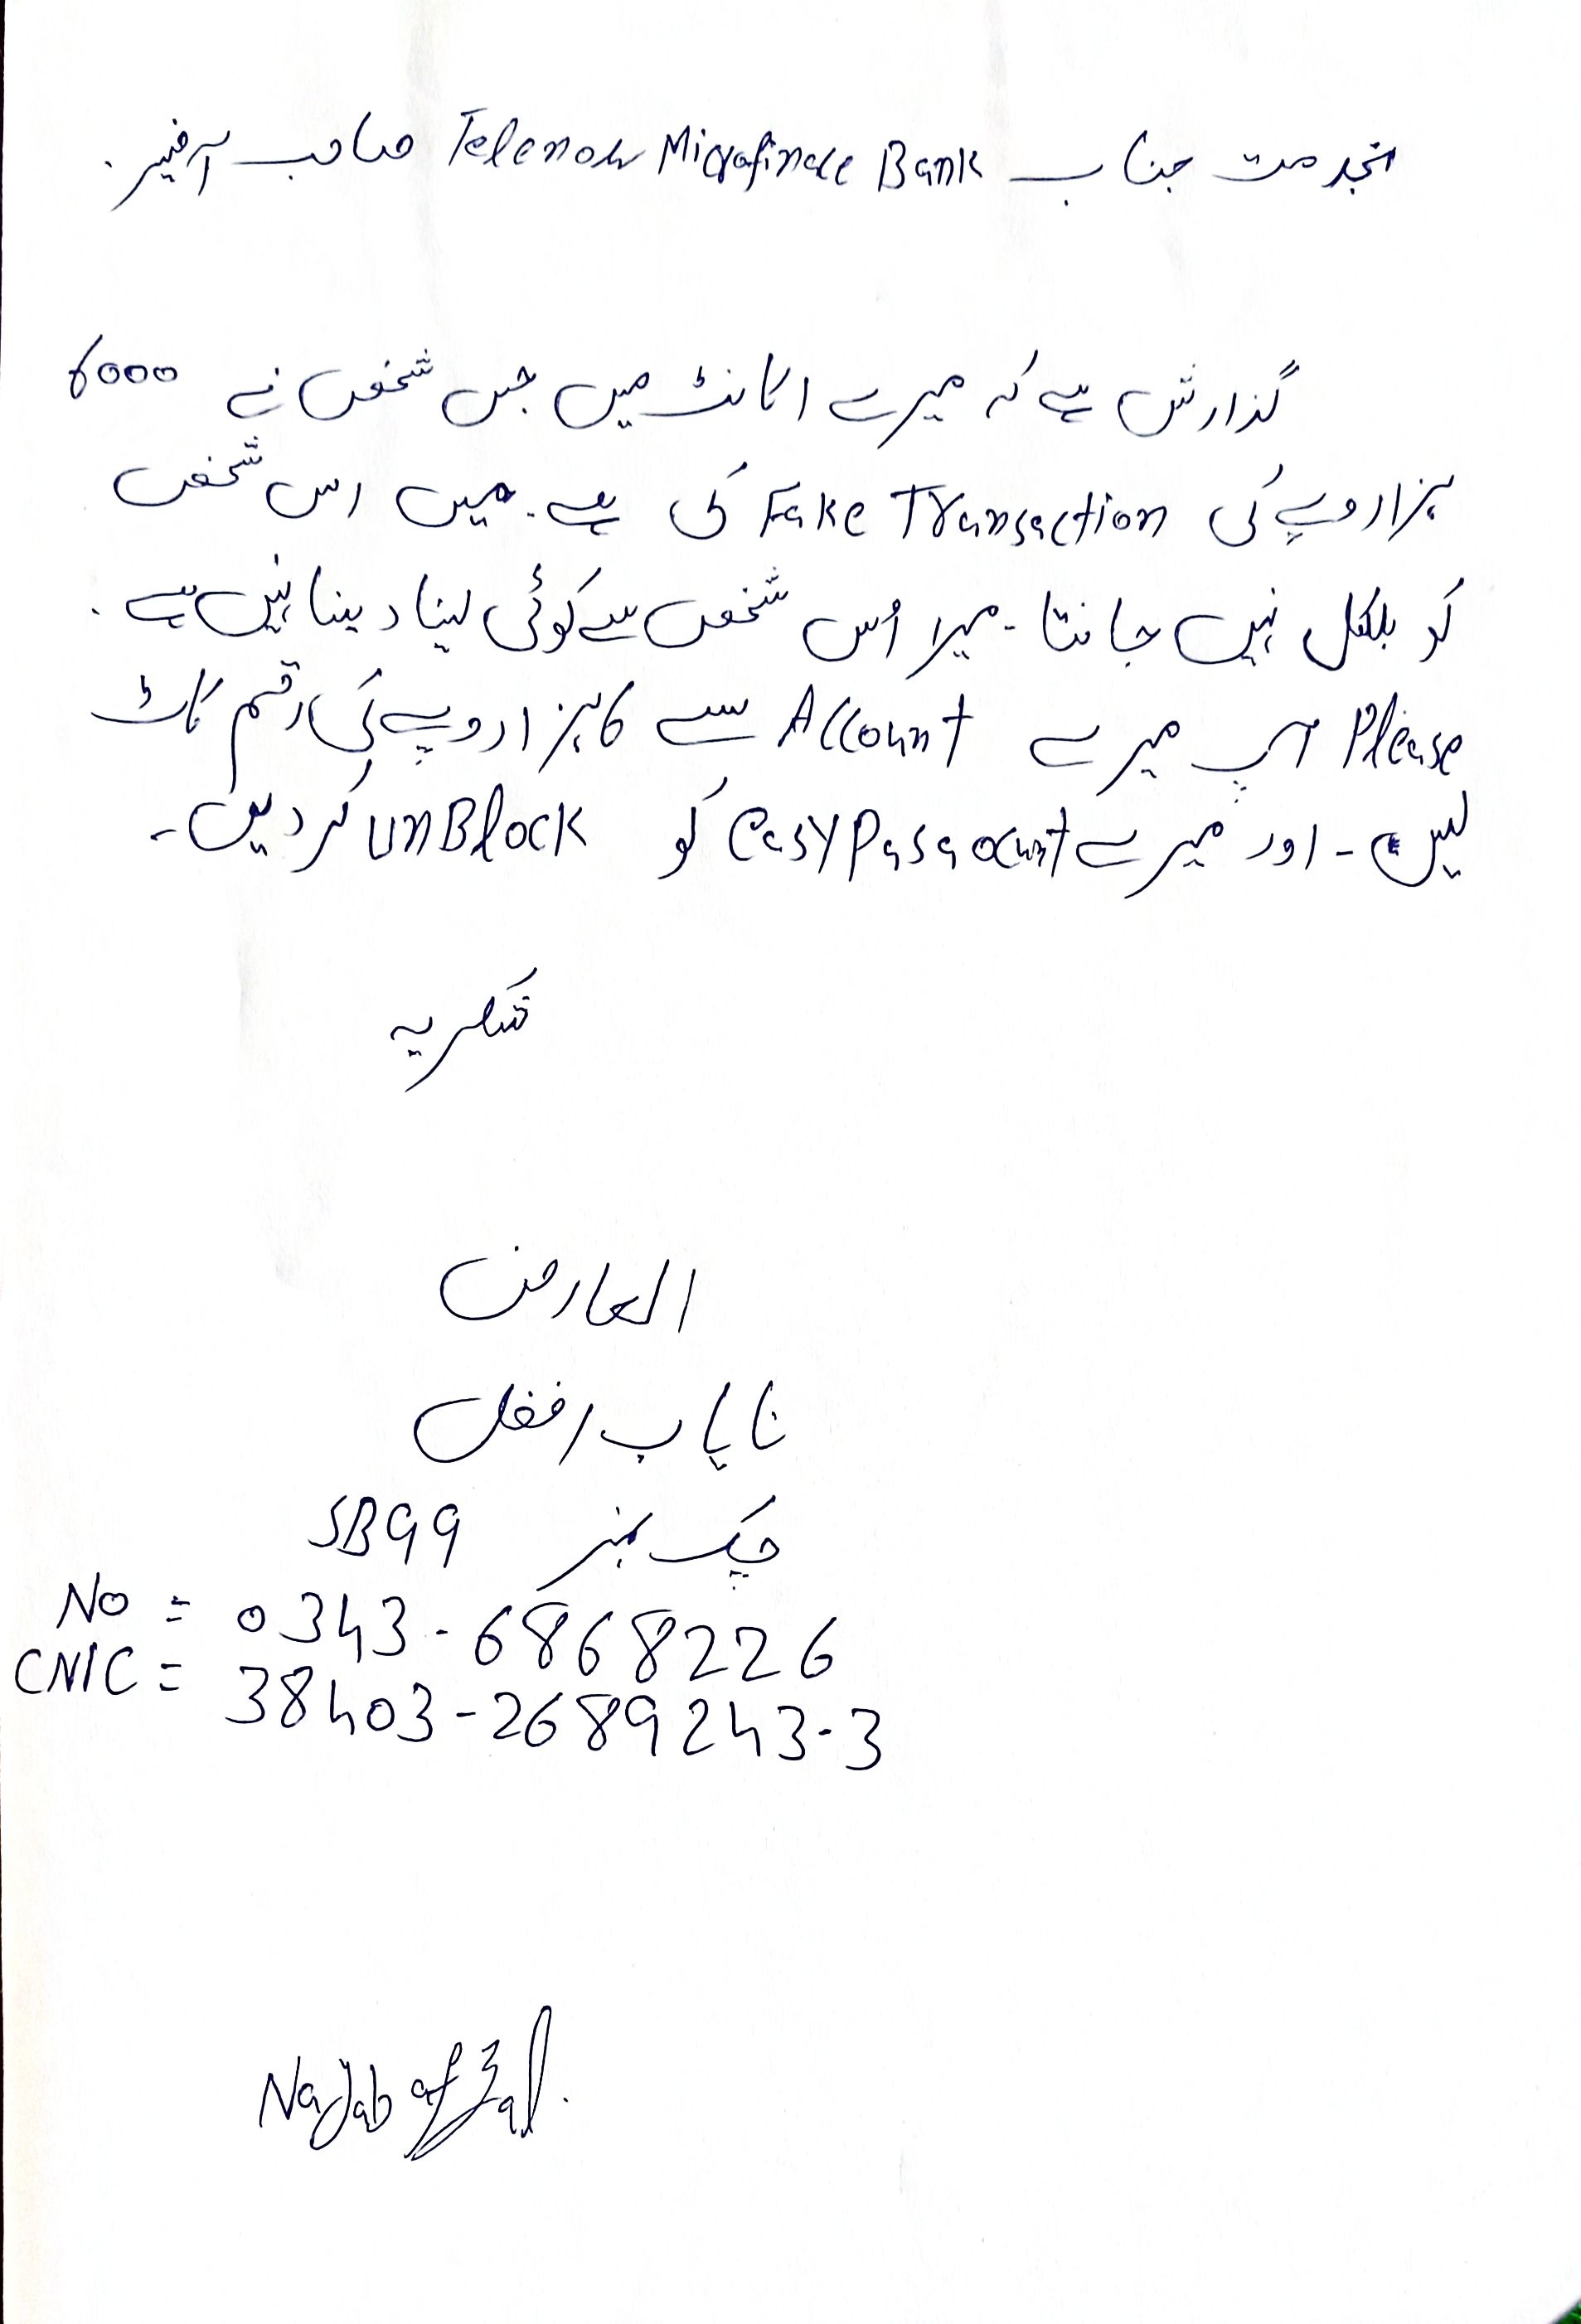 بخدمت جناب Telenor Micrafinace Bank صاحب آفیسر.
گذارش ہے کہ میرے اکانٹ میں جس شخص نے 6000
ہزار روپے کی Fake Transaction کی ہے۔ میں اس شخص
کو بلکل نہیں جانتا۔ میرا اُس شخص سے کوئی لینا دینا نہیں ہے۔
Please آپ میرے Account سے 6 ہزار روپے کی رقم کاٹ
لیں۔ اور میرے easypasaocunt کو unBlock کر دیں۔
شکریہ
العارض
نایاب افضل
چک نمبر SB99
No = 0343-6868226
CNIC = 38403-2689243-3
Nayab afzal.